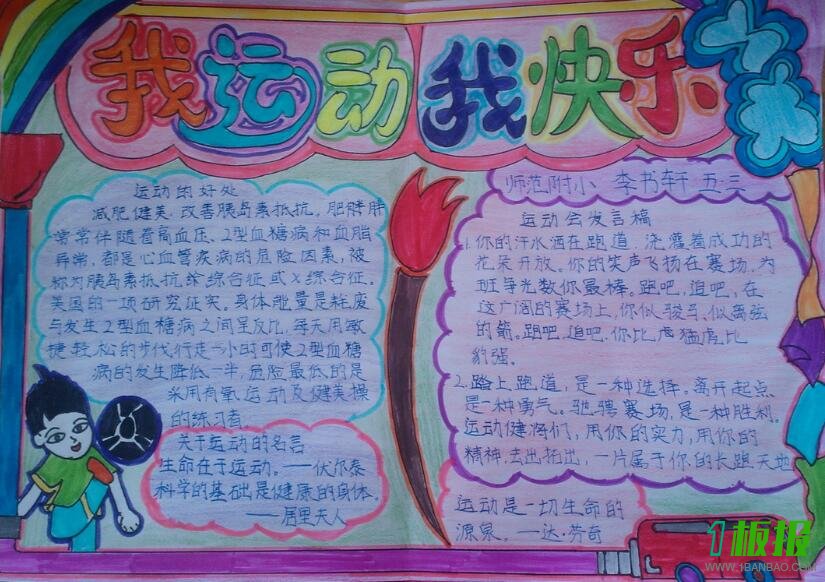 我运动 我快乐
运动的好处
减肥健美,改善胰岛素抵抗。肥胖
常常伴随着高血压、2型血糖病和血脂
异常,都是心血管疾病的危险因素,被
称为胰岛素抵抗综合征或X综合征。
美国的一项研究证实。身体能量是耗废
与发生2型血糖病之间呈反比,每天用敏
捷轻松的步伐行走一小时可使2型血糖
病的发生降低一半,危险最低的是
采用有氧运动及健美操
的练习者。
关于运动的名言
生命在于运动。——伏尔泰
科学的基础是健康的身体。
——居里夫人
师范附小 李书轩 五·三
运动会发言稿
1.你的汗水洒在跑道,浇灌着成功的
花朵开放。你的笑声飞扬在赛场,为
班争光数你最棒。跑吧,追吧,在
这广阔的赛场上,你似骏马,似离弦
的箭。跑吧,追吧,你比虎猛虎比
豹强。
2.踏上跑道,是一种选择。离开起点
是一种勇气。驰骋赛场,是一种胜利。
运动健将们,用你的实力,用你的
精神,去出拓出,一片属于你的长跑天地
运动是一切生命的
源泉。——达·芬奇
1板报
WWW.1BANBAO.COM